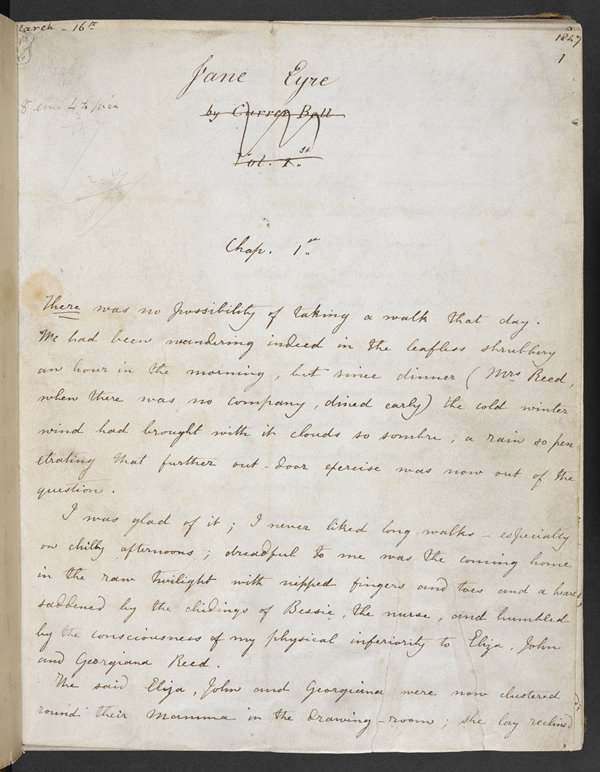 March - 16th
1847
1
Jane Eyre
by Currer Bell
Vol. 1.st
Chap. 1.st
There was no possibility of taking a walk that day.
We had been wandering indeed in the leafless shrubbery
an hour in the morning, but since dinner (Mrs Reed,
when there was no company, dined early) the cold winter
wind had brought with it clouds so sombre, a rain so pen-
etrating that further out-door exercise was now out of the
question.
I was glad of it; I never liked long walks - especially
on chilly afternoons; dreadful to me was the coming home
in the raw twilight with nipped fingers and toes and a heart
saddened by the chidings of Bessie, the nurse, and humbled
by the consciousness of my physical inferiority to Eliza, John
and Georgiana Reed.
The said Eliza, John and Georgiana were now clustered
round their Mamma in the drawing-room; she lay reclined